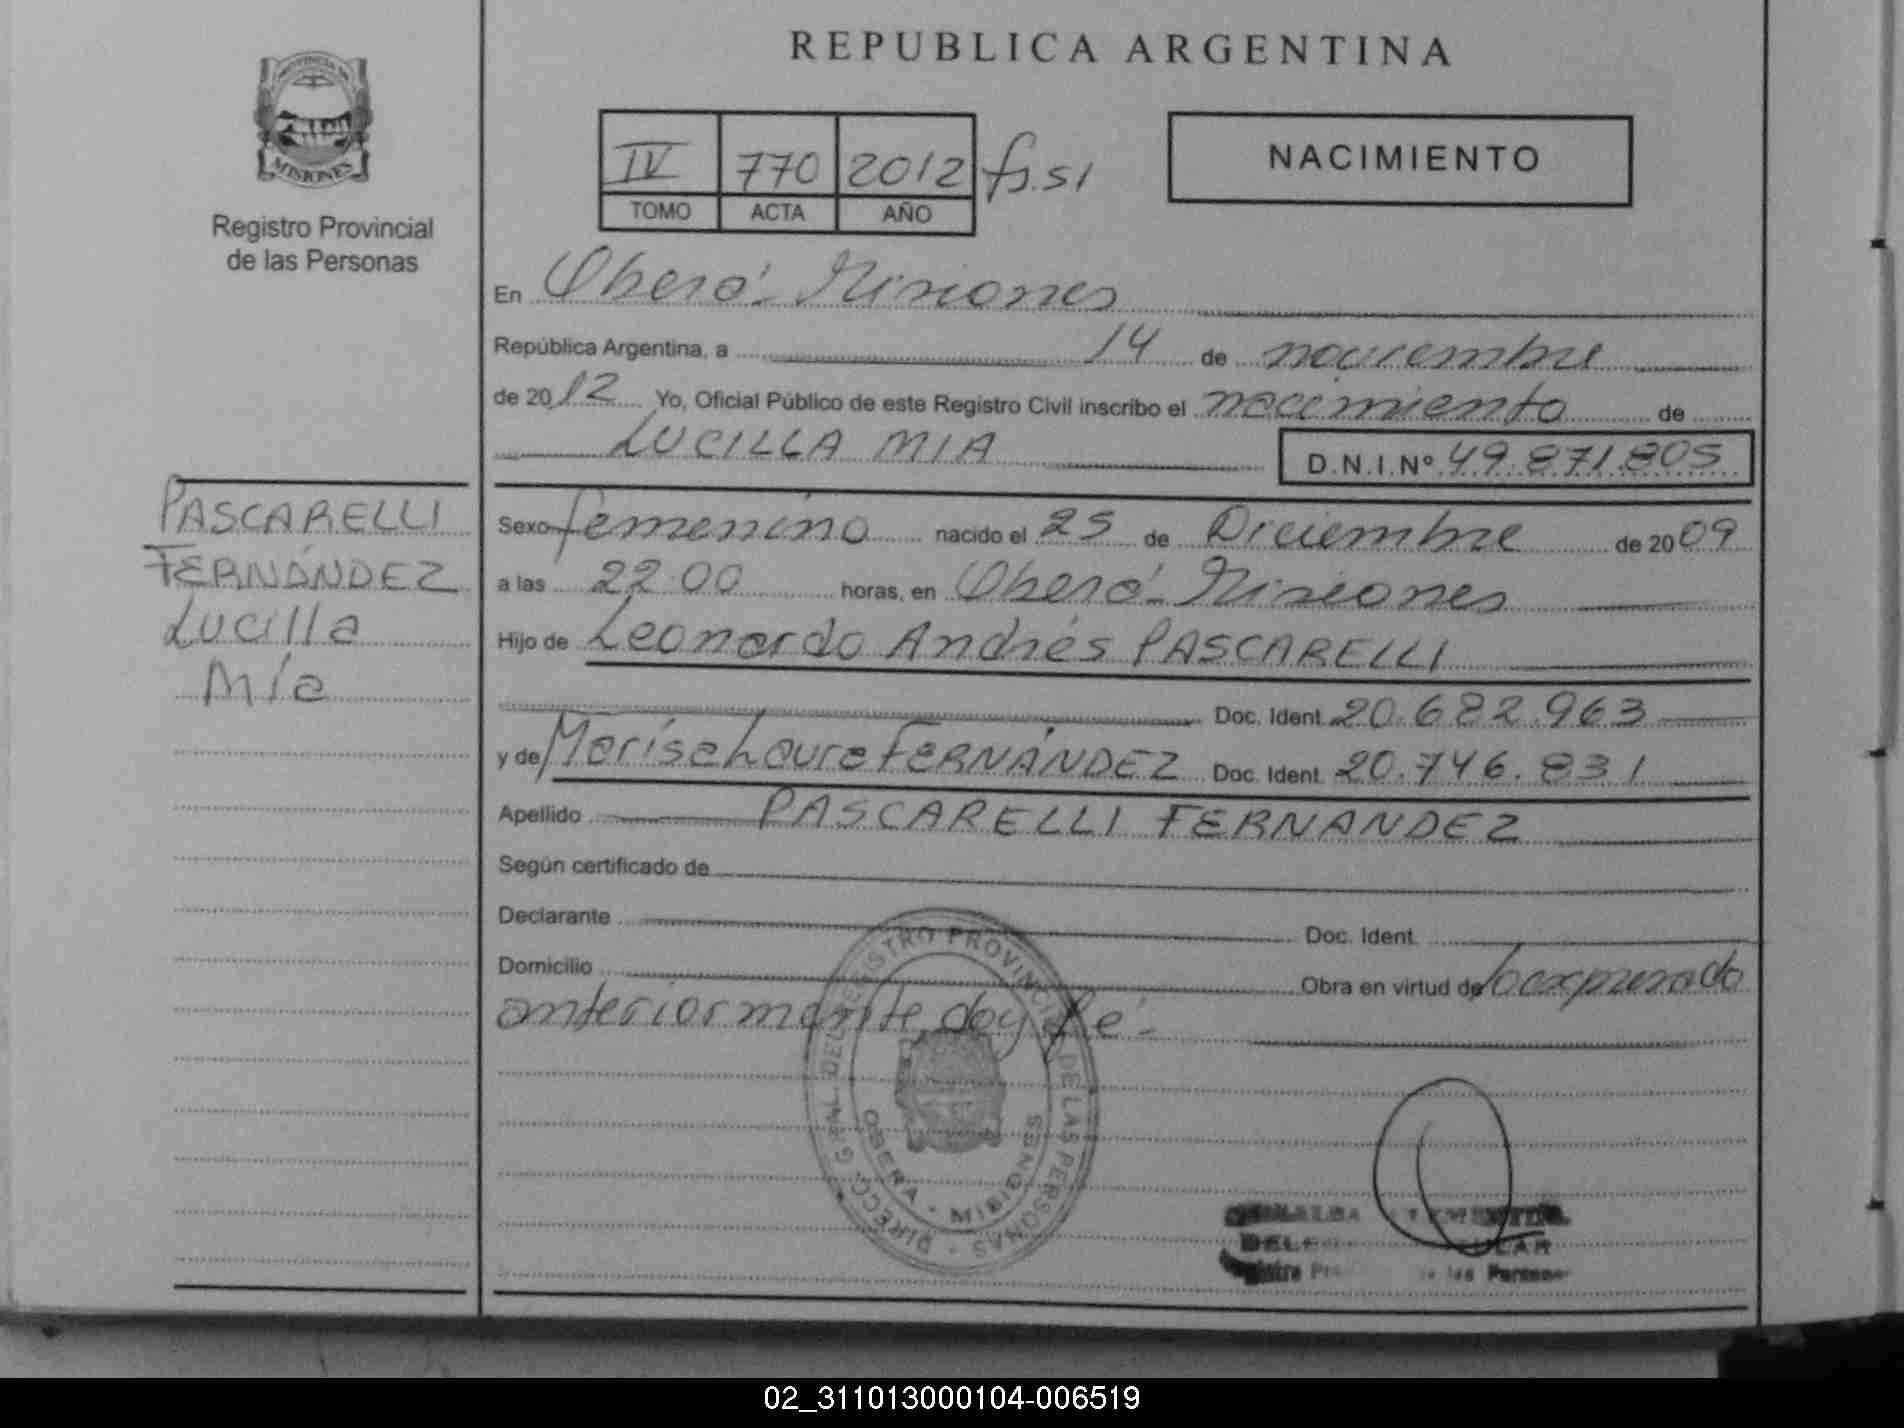 REPUBLICA ARGENTINA
PROVINCIA DE
MISIONES
Registro Provincial
de las Personas
IV 770 2012 fs. 51
TOMO ACTA AÑO
NACIMIENTO
En Oberá - Misiones
República Argentina, a 14 de noviembre
de 2012 Yo, Oficial Público de este Registro Civil inscribo el nacimiento de
LUCILLA MIA D.N.I.Nº 49.871.805
PASCARELLI
FERNÁNDEZ
Lucilla
Mía
Sexo femenino nacido el 25 de Diciembre de 2009
a las 22:00 horas, en Oberá - Misiones
Hijo de Leonardo Andrés PASCARELLI
Doc. Ident. 20.682.963
y de Marísa Laura FERNÁNDEZ Doc. Ident. 20.746.831
Apellido PASCARELLI FERNANDEZ
Según certificado de
Declarante Doc. Ident.
Domicilio Obra en virtud de lo expresado
anteriormente, doy fé -
DIRECC. GRAL. DEL REGISTRO PROVINCIAL DE LAS PERSONAS
OBERA - MISIONES
de las Personas
02_311013000104-006519